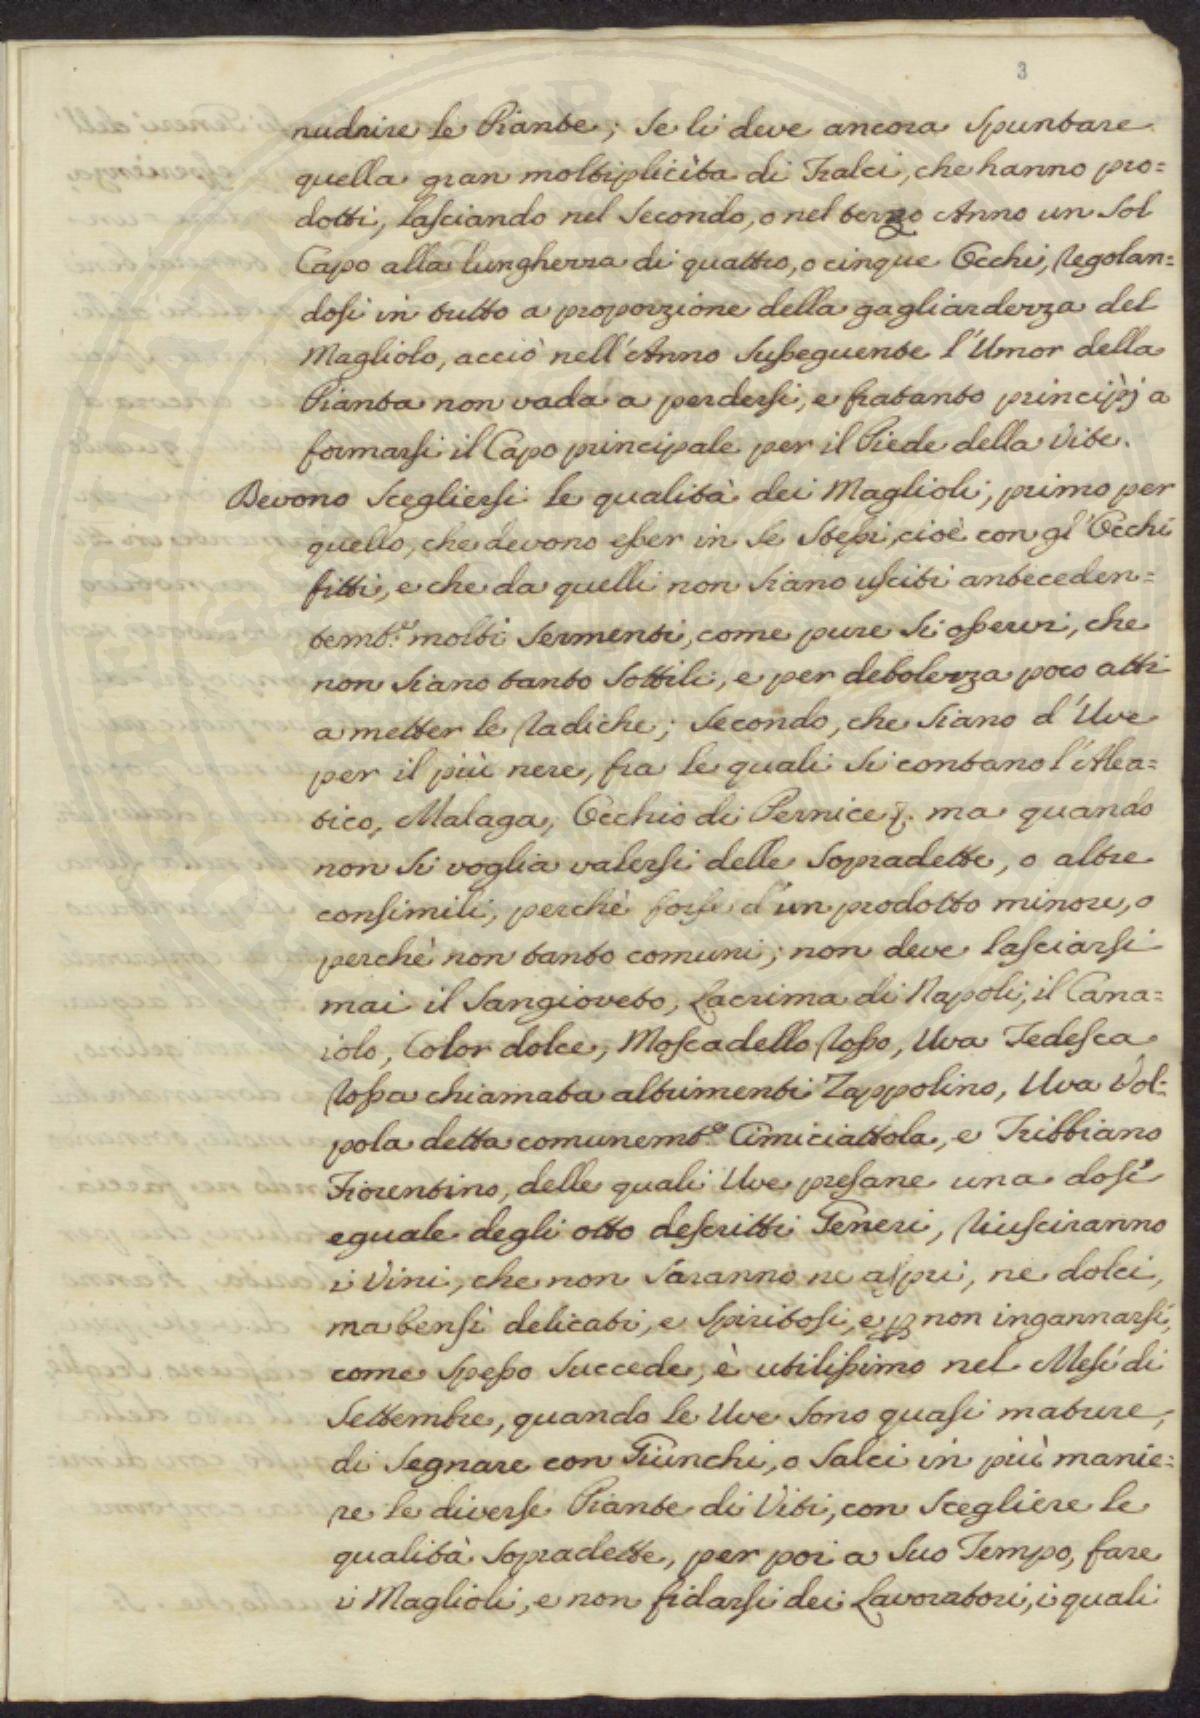 3
nudrire le Piante; Se li deve ancora Spuntare
quella gran moltiplicita di Tralci, che hanno pro=
dotti, lasciando nel Secondo, o nel terzo Anno un Sol
Capo alla lungherza di quattro, o cinque Occhi, Regolan=
dosi in tutto a proporzione della gagliarderza del
Magliolo, acciò nell'Anno Susseguente l'Umor della
Pianta non vada a perdersi, e fratanto principj a
formarsi il Capo principale per il Piede della Vite.
Devono Scegliersi le qualità dei Maglioli, primo per
quello, che devono esser in Se Stessi, cioè con gl'Occhi
fitti, e che da quelli non Siano usciti anteceden=
temte. molti Sermenti, come pure Si osservi, che
non Siano tanto Sottili, e per debolerza poco atti
a metter le Radiche; Secondo, che Siano d'Uve
per il più nere, fra le quali Si contano l'Alea=
tico, Malaga, Occhio di Pernice &. ma quando
non Si voglia valersi delle Sopradette, o altre
consimili, perchè forse d'un prodotto minore, o
perchè non tanto comuni; non deve lasciarsi
mai il Sangioveto, Lacrima di Napoli, il Cana=
iolo, Color dolce, Moscadello Rosso, Uva Tedesca
Rossa chiamata altrimenti Zappolino, Uva Vol=
pola detta comunemte. Cimiciattola, e Tribbiano
Fiorentino, delle quali Uve presane una dose
eguale degli otto descritti Generi, Riusciranno
i Vini, che non Saranno ne aspri, ne dolci,
ma bensì delicati, e Spiritosi, e p non ingannarsi,
come Spesso Succede, è utilissimo nel Mese di
Settembre, quando le Uve Sono quasi mature,
di Segnare con Giunchi, o Salci in più manie=
re le diverse Piante di Viti, con Scegliere le
qualità Sopradette, per poi a Suo Tempo, fare
i Maglioli, e non fidarsi dei Lavoratori, i quali